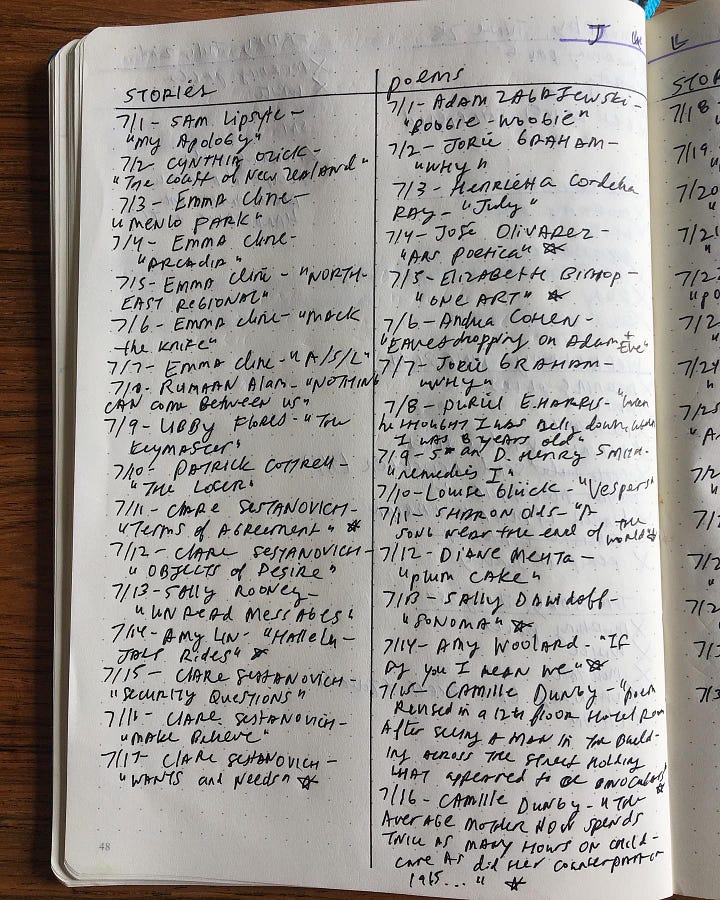 J
STORIES
7/1- SAM Lipsyte-
"My Apology"
7/2- CYNTHIA OZICK-
"The Coast of New Zealand"
7/3- Emma Cline-
"Menlo PARK"
7/4- Emma Cline-
"ARCADIA"
7/5- Emma Cline- "NORTH-
EAST REGIONAL"
7/6- Emma Cline- "Mack
the Knife"
7/7- Emma Cline- "A/S/L"
7/8- RUMAAN Alam- "NOTHING
CAN come Between us"
7/9- LIBBY FLORES- "The
Keymaster"
7/10- PATRICK COTTRELL-
"The Loser"
7/11- CLARE SESTANOVICH-
"Terms of Agreement" ☆
7/12- CLARE SESTANOVICH-
"OBJECTS of Desire"
7/13- SALLY ROONEY-
"UNREAD MESSAGES"
7/14- AMY LIN- "Hallelu-
JAH Rides" ☆
7/15- CLARE SESTANOVICH-
"SECURITY QUESTIONS"
7/16- CLARE SESTANOVICH-
"MAKE Believe"
7/17- CLARE SESTANOVICH-
"WANTS and Needs" ☆
48
poems
7/1- ADAM ZAGAJEWSKI-
"BOOGIE-WOOGIE"
7/2- JORIE GRAHAM-
"WHY"
7/3- Henrietta Cordelia
RAY- "July"
7/4- José OLIVAREZ-
"Ars Poetica" ☆
7/5- ELIZABETH BISHOP-
"ONE ART" ☆
7/6- Andrea COHEN-
"Eavesdropping on Adam + Eve"
7/7- JORIE GRAHAM-
"WHY"
7/8- DURIEL E. HARRIS- "when
he thought I was
I WAS 8 YEARS old"
7/9- S*an D. HENRY SMITH-
"remedies I"
7/10- Louise Glück- "Vespers"
7/11- SHARON Olds- "A
SONG NEAR the end of the
world" ☆
7/12- DIANE MEHTA-
"plum CAKE"
7/13- SALLY DAWIDOFF-
"SONOMA" ☆
7/14- AMY WOOLARD- "If
by you I MEAN we" ☆
7/15- CAMILLE DUNGY- "poem
Revised in a 12th floor Hotel Room
After seeing A MAN in The Build-
ing ACROSS THE Street Holding
WHAT appeared to be BINOCULARS"
7/16- CAMILLE DUNGY- "The ☆
AVERAGE MOTHER NOW Spends
TWICE AS MANY HOURS ON CHILD-
CARE AS did Her Counterpart in
1965..." ☆
STO
7/18
7/19
7/20
7/21